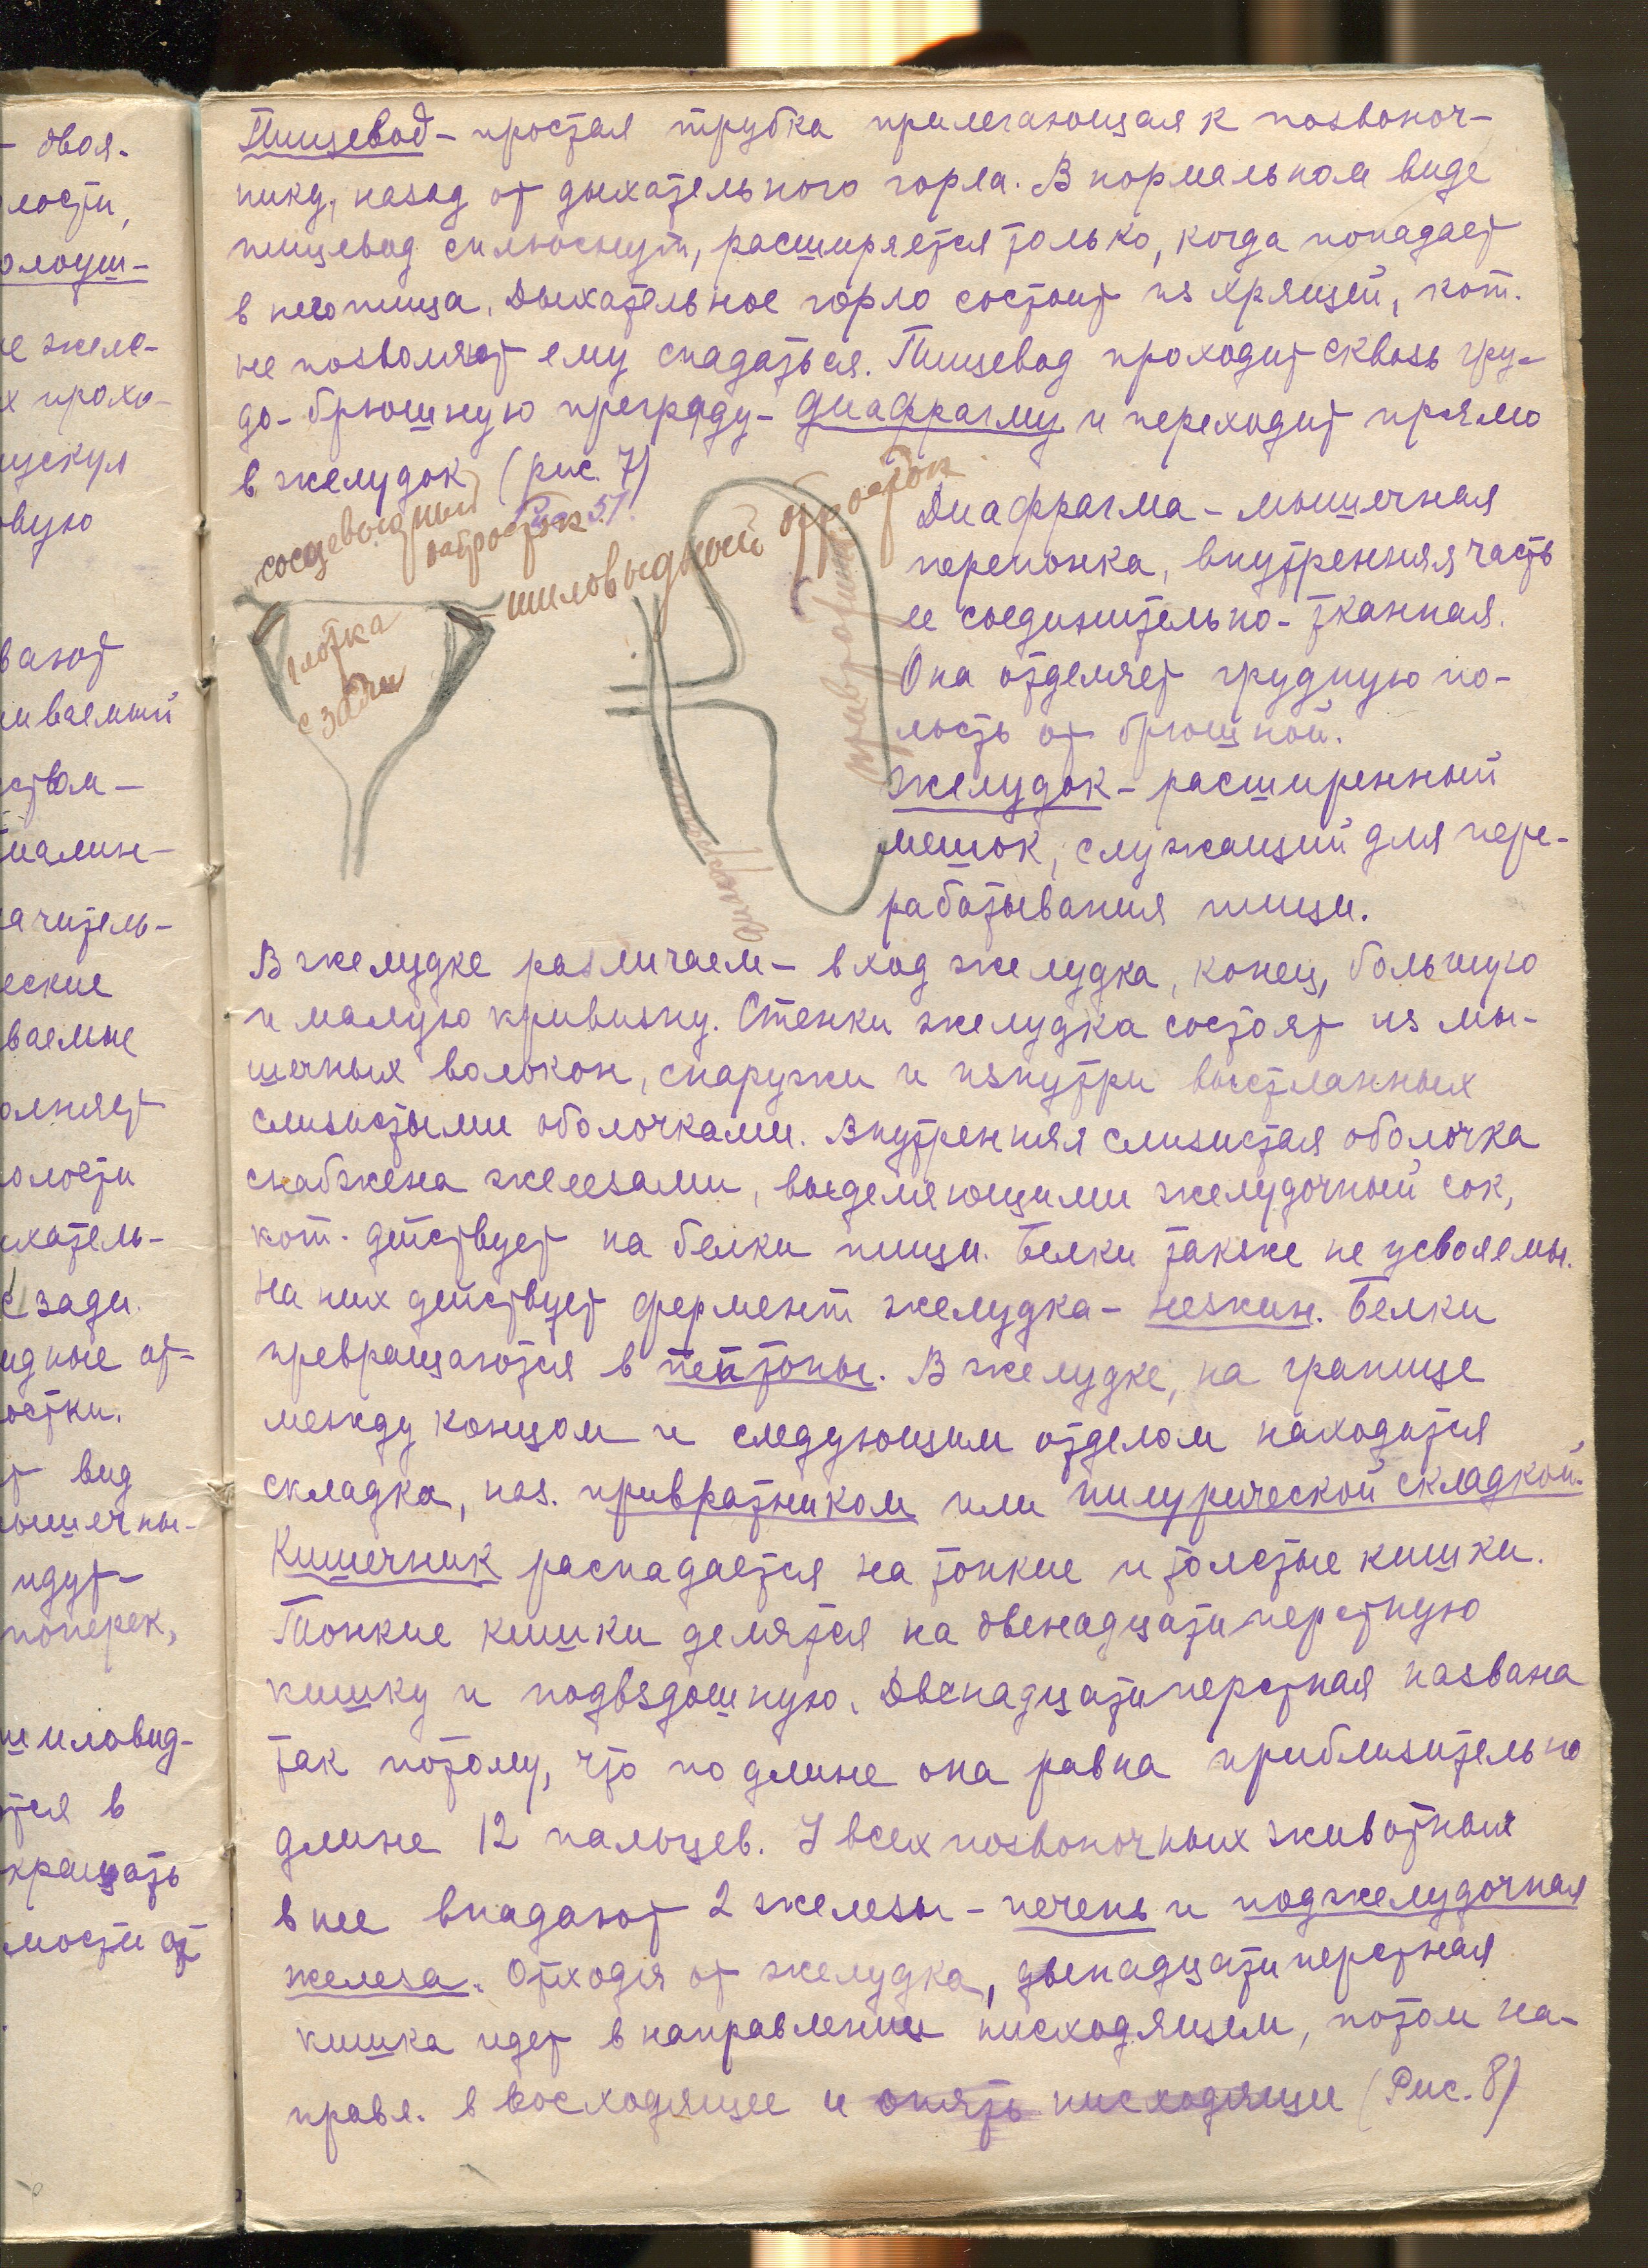 - двоя-
лости,
олоуш-
е желе-
х прохо-
ускул
овую
вают
иваемый
ством -
иалин-
ачитель-
еские
ваемые
олняет
олости
ыхатель-
сзади.
идные от-
остки.
т вид
мышечны-
идут-
поперек,
шиловид-
тся в
кращать
мости от
Пищевод - простая трубка прилегающая к позвоноч-
нику, назад от дыхательного горла. В нормальном виде
пищевод сплюснут, расширяется только, когда попадает
в него пища. Дыхательное горло состоит из хрящей, кот.
не позволяют ему спадаться. Пищевод проходит сквозь гру-
до-брюшную преграду - диафрагму и переходит прямо
в желудок (рис. 7)
Рис 5).
сосцевидный
отросток
шиловидный отросток
глотка
сзади
диафрагма
Диафрагма - мышечная
перепонка, внутренняя часть
ее соединительно-тканная.
Она отделяет грудную по-
лость от брюшной.
Желудок - расширенный
мешок, служащий для пере-
рабатывания пищи.
В желудке различаем - вход желудка, конец, большую
и малую кривизну. Стенки желудка состоят из мы-
шечных волокон, снаружи и изнутри выстланных
слизистыми оболочками. Внутренняя слизистая оболочка
снабжена железами, выделяющими желудочный сок,
кот. действует на белки пищи. Белки также не усвояемы.
На них действует фермент желудка - пепсин. Белки
превращаются в пептоны. В желудке, на границе
между концом и следующим отделом находится
складка, наз. привратником или пилурической складкой.
Кишечник распадается на тонкие и толстые кишки.
Тонкие кишки делятся на двенадцатиперстную
кишку и подвздошную. Двенадцатиперстная названа
так потому, что по длине она равна приблизительно
длине 12 пальцев. У всех позвоночных животных
в нее впадают 2 железы - печень и поджелудочная
железа. Отходя от желудка, двенадцатиперстная
кишка идет в направлении нисходящем, потом на-
правл. в восходящее и опять нисходящее (Рис. 8)